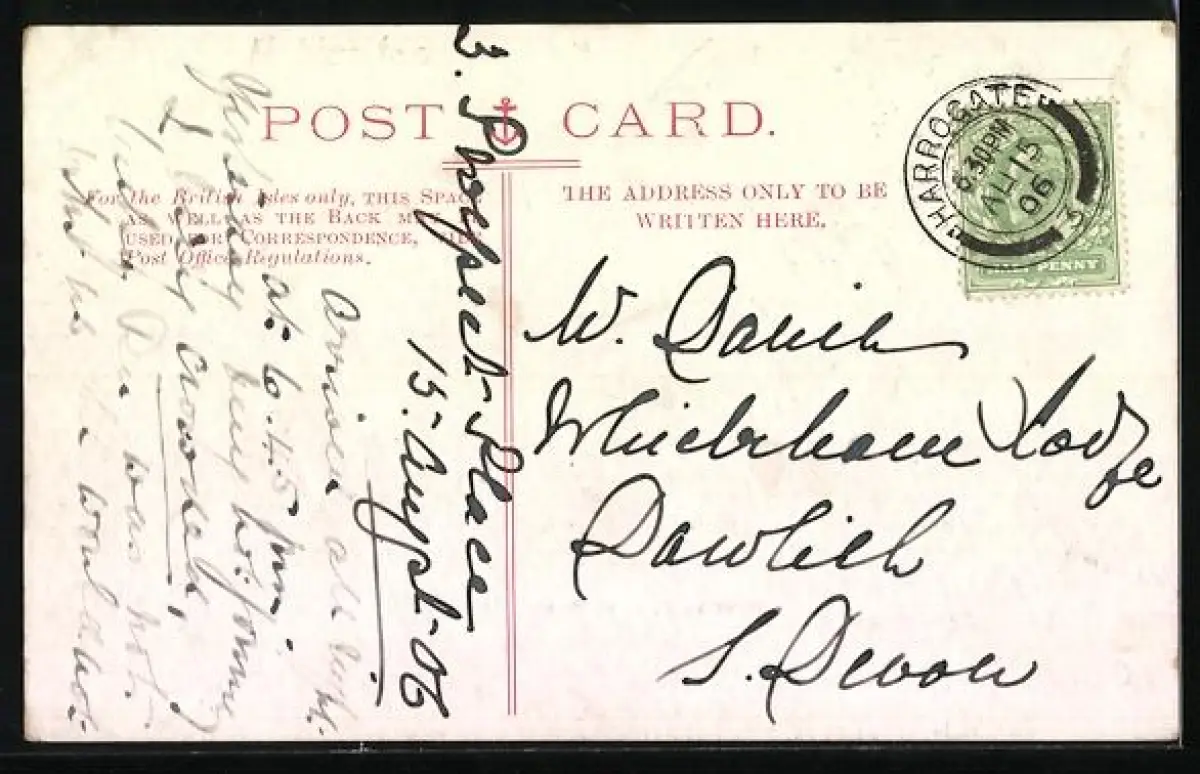 POST CARD.
For the British Isles only, THIS SPACE
AS WELL AS THE BACK MAY
USED FOR CORRESPONDENCE,
Post Office Regulations.
THE ADDRESS ONLY TO BE
WRITTEN HERE.
HARROGATE
6.30PM
AU 15
06
3
HALF PENNY
W. Davis
Lodge
Dawlish
S. Devon
3. Prospect Place
15. August-06
Arrived all right
at 6.45 pm.
Yesterday being hot journey
& crowded,
was hot.
would not